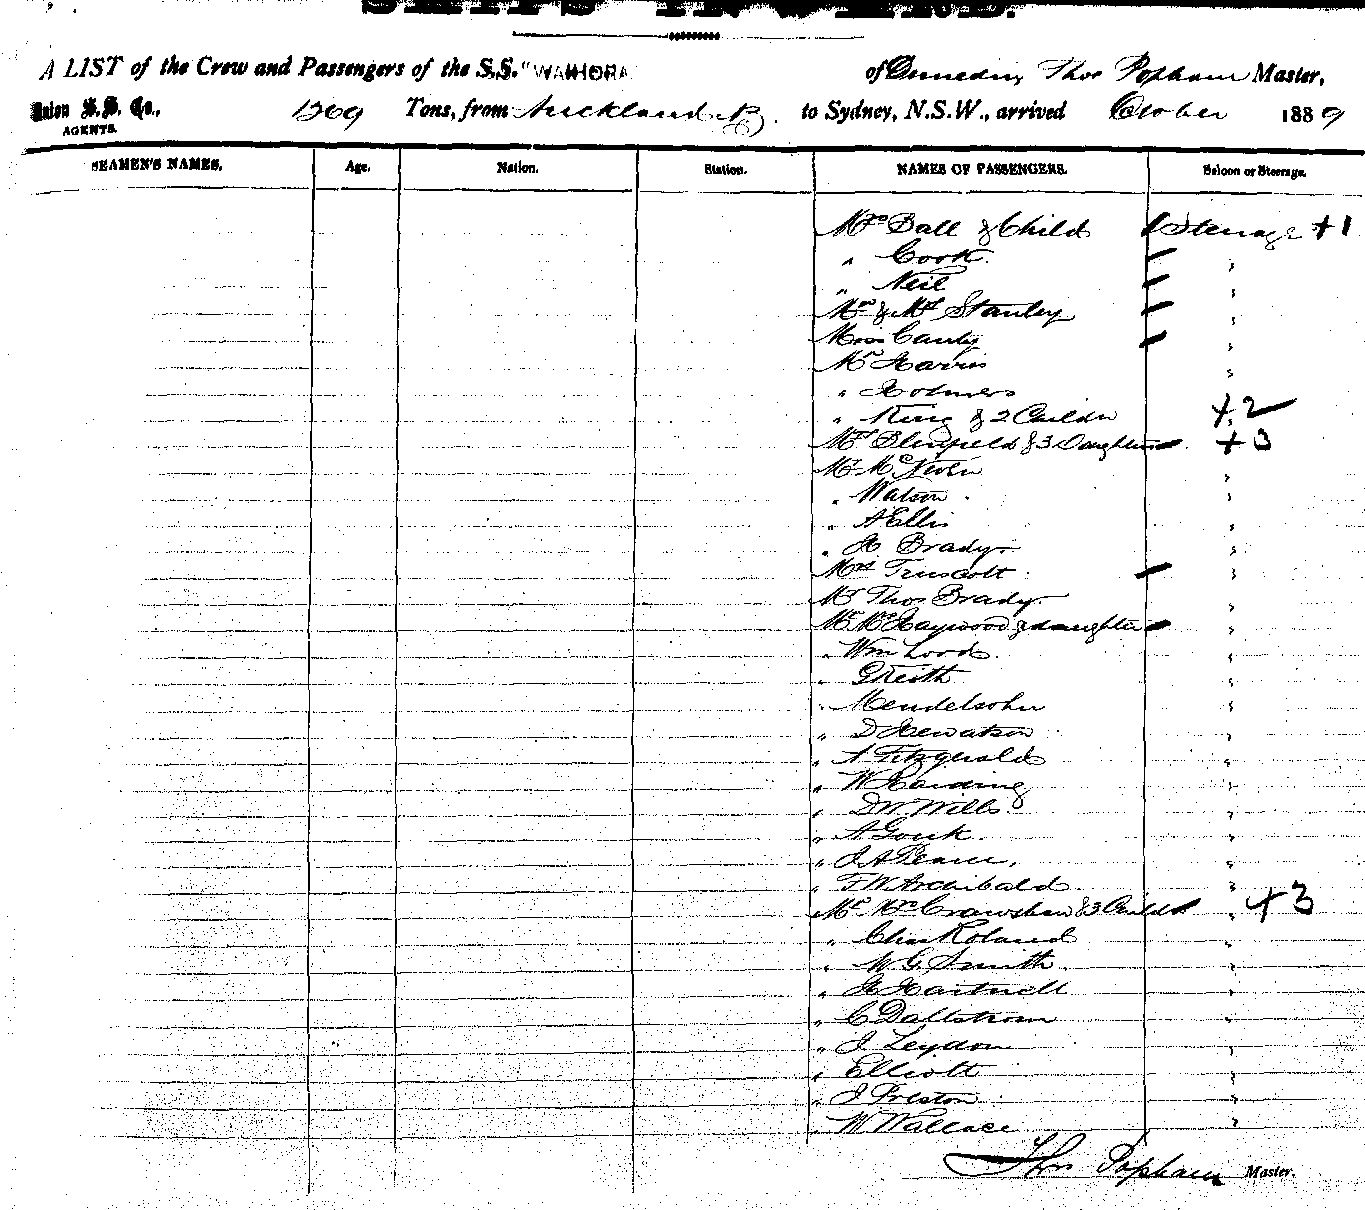 SHIPS INWARD.
A LIST of the Crew and Passengers of the S.S. "WAIHORA of Dunedin, Thos Popham Master,
Union S.S. Co., AGENTS. 1269 Tons, from Auckland N.Z. to Sydney, N.S.W., arrived October 1889
SEAMEN'S NAMES. Age. Nation. Station. NAMES OF PASSENGERS. Saloon or Steerage.
Mrs Ball & Child Steerage +1
" Cook "
" Neil "
Mr & Mrs Stanley "
Miss Canty "
Mr Harris "
" Holmes
" King & 2 Childn +2
Mrs & 3 Daughters +3
Mr McNiven "
" Watson "
" A Ellis "
" H Brady "
Mrs Truscott "
Mr Thos Brady "
Mr Mrs Haywood & daughter "
" Wm Loods "
" G Keith "
" Mendelsohn "
" D Hewatson "
" A Fitzgerald "
" W Harding "
" DW Wills "
" A Gouk "
" J A Pearce, "
" FW Archibald "
Mr Mrs Crawshaw & 3 Childn " +3
" Chas Roland "
" W G Smith "
" H Hartnell "
" C Dallstrom "
" J Leydon "
" Elliott "
" J Preston "
" W Wallace "
Thos Popham Master.